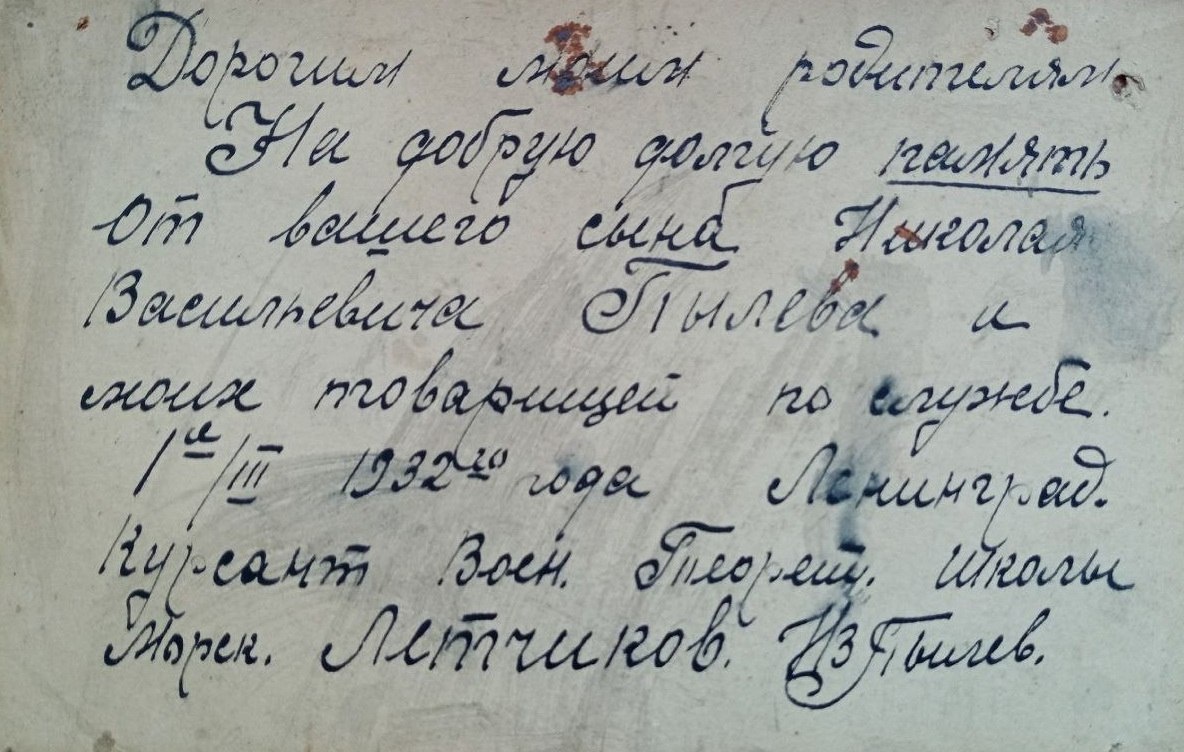 Дорогим моим родителям
На добрую долгую память
от вашего сына Николая
Васильевича Пылева и
моих товарищей по службе.
1ᵃ/III 1932ᵍᵒ года Ленинград.
Курсант Воен. Теорет. Школы
Морск. Летчиков. Пылев.